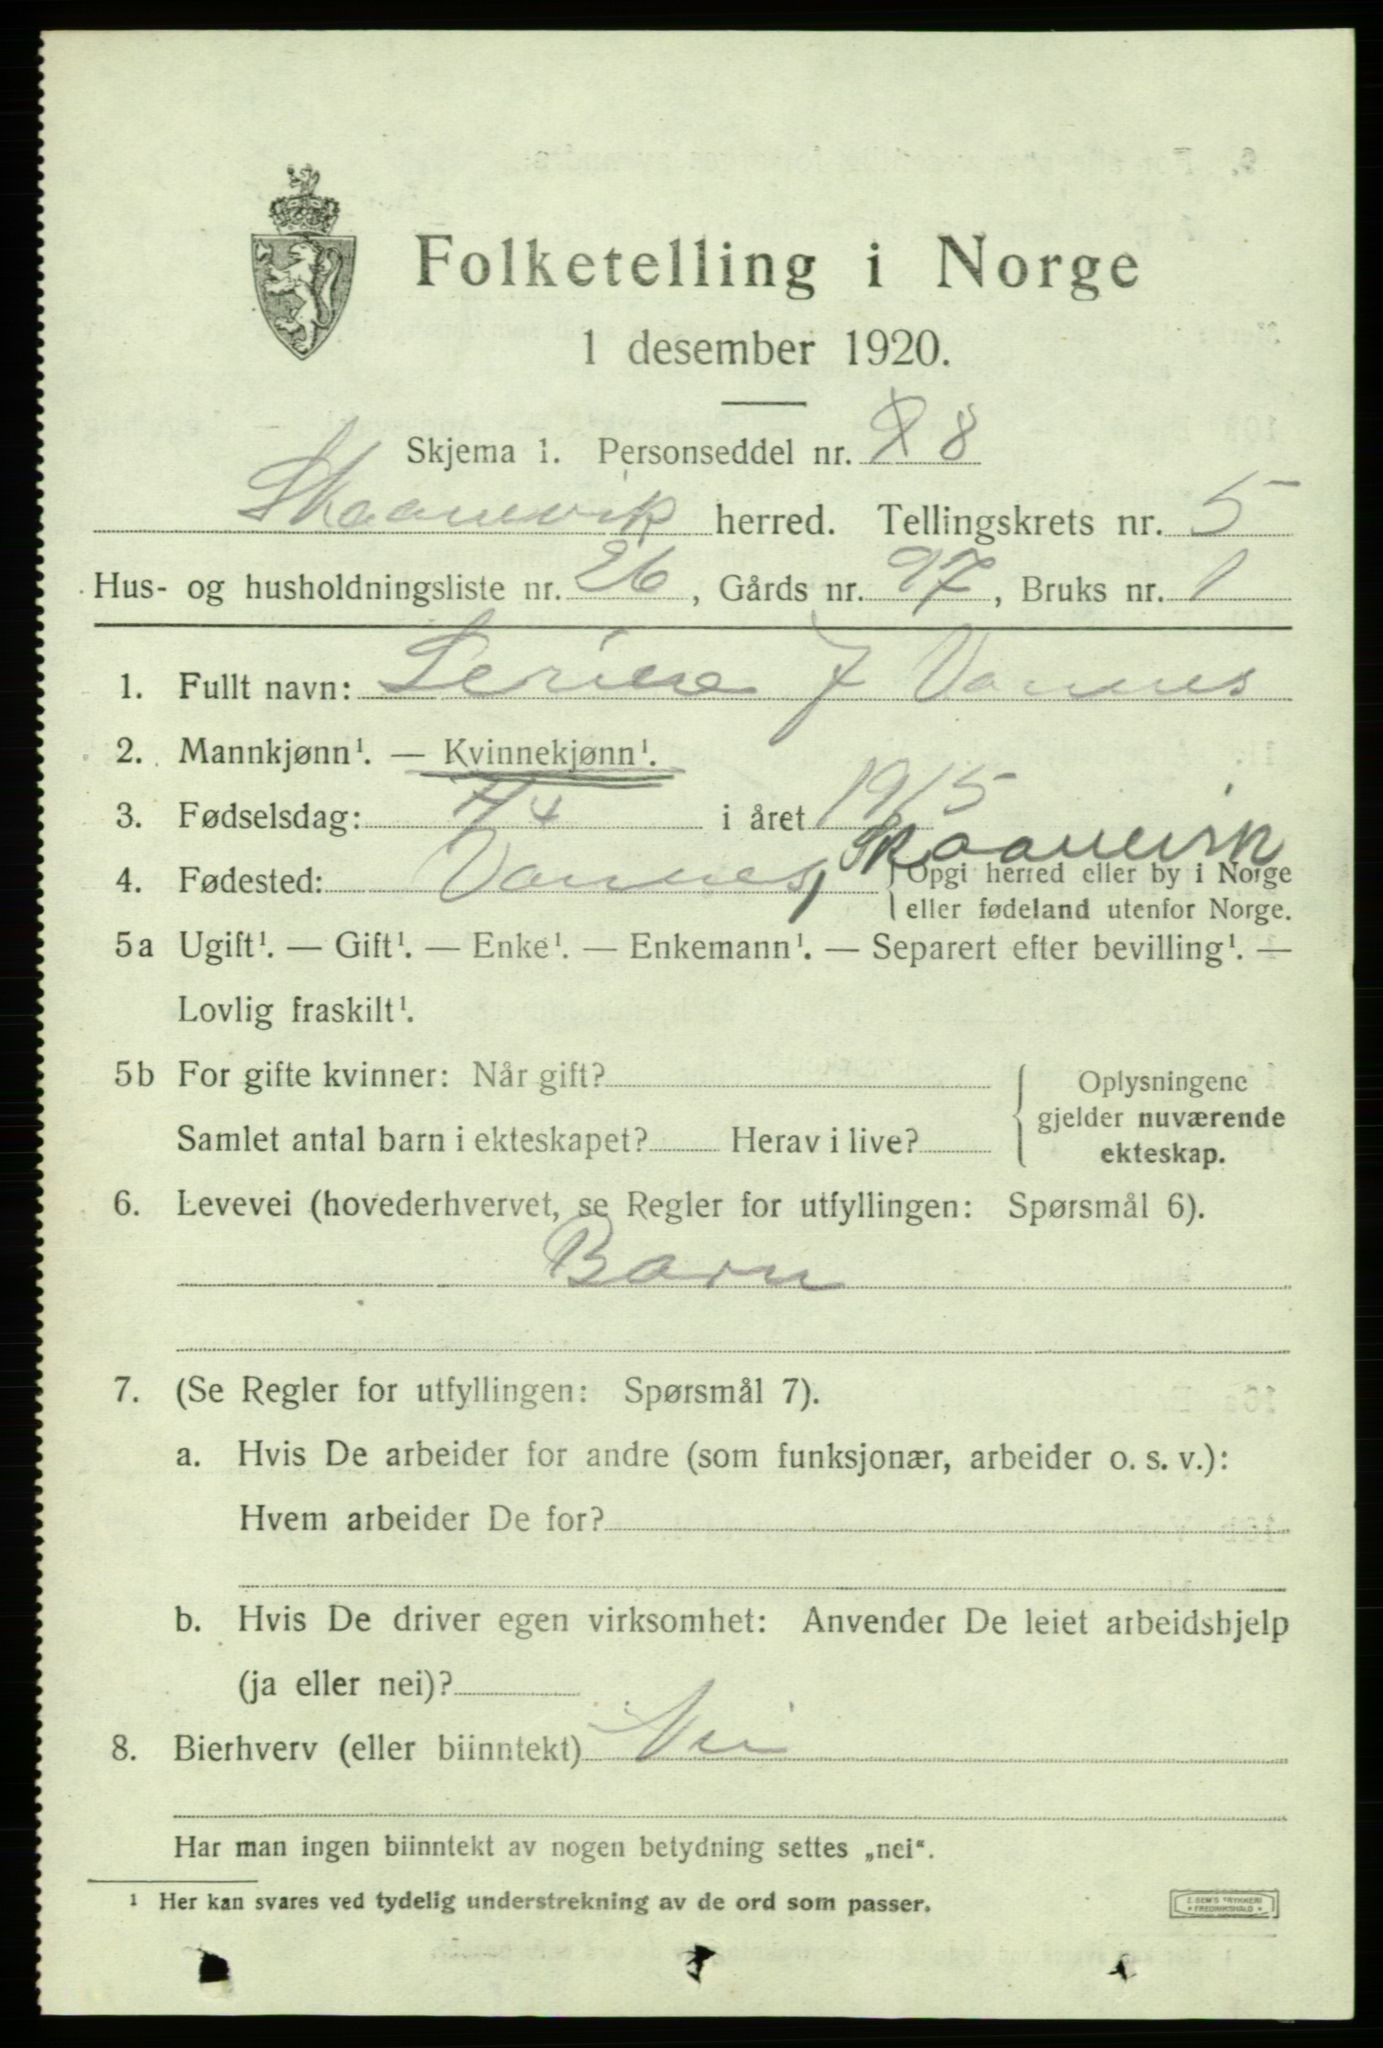 Folketelling i Norge
1 desember 1920.
Skjema 1. Personseddel nr. 8
Skaanevik herred. Tellingskrets nr. 5
Hus- og husholdningsliste nr. 26, Gårds nr. 97, Bruks nr. 1
1. Fullt navn: Serine J Vannes
2. Mannkjønn¹. — Kvinnekjønn¹.
3. Fødselsdag: 4 i året 1915
4. Fødested: Vannes, Skaanevik
Opgi herred eller by i Norge
eller fødeland utenfor Norge.
5a Ugift¹. — Gift¹. — Enke¹. — Enkemann¹. — Separert efter bevilling¹. —
Lovlig fraskilt¹.
5b For gifte kvinner: Når gift?
Samlet antal barn i ekteskapet? Herav i live?
Oplysningene
gjelder nuværende
ekteskap.
6. Levevei (hovederhvervet, se Regler for utfyllingen: Spørsmål 6).
Barn
7. (Se Regler for utfyllingen: Spørsmål 7).
a. Hvis De arbeider for andre (som funksjonær, arbeider o. s. v.):
Hvem arbeider De for?
b. Hvis De driver egen virksomhet: Anvender De leiet arbeidshjelp
(ja eller nei)?
8. Bierhverv (eller biinntekt) Nei
Har man ingen biinntekt av nogen betydning settes „nei“.
¹ Her kan svares ved tydelig understrekning av de ord som passer.
E. SEM'S TRYKKERI
* FREDRIKSHALD *